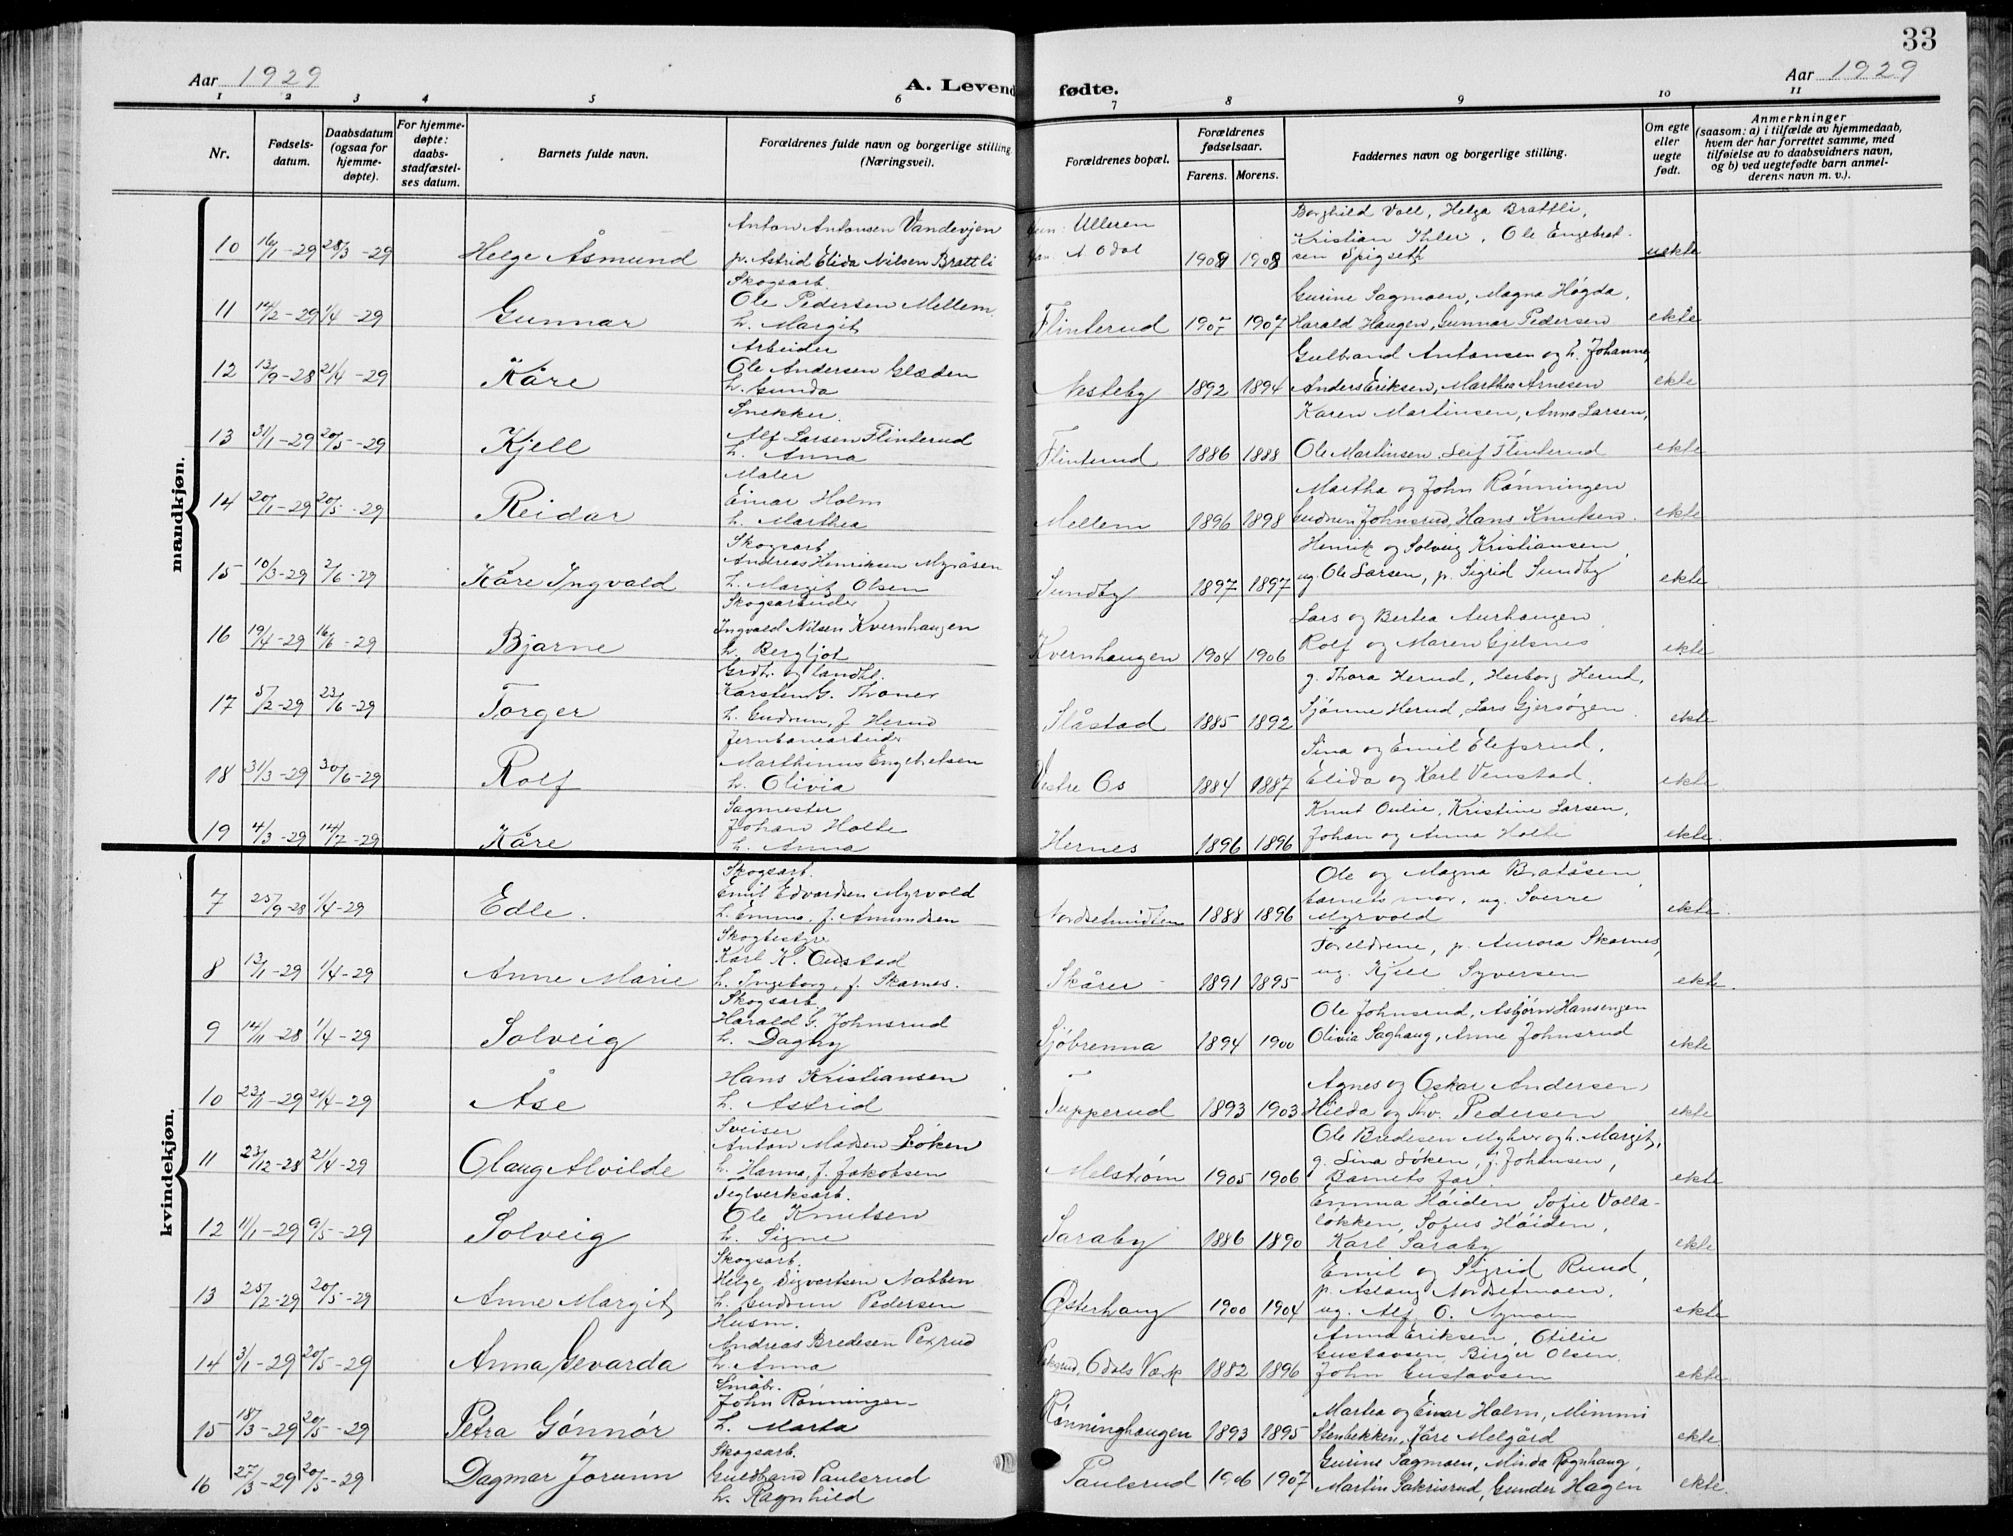 33
Aar 1929
A. Levend fødte.
Aar 1929
1 2 3 4 5 6 7 8 9 10 11
Nr.
Fødsels-
datum.
Daabsdatum
(ogsaa for
hjemme-
døpte).
For hjemme-
døpte:
daabs-
stadfæstel-
ses datum.
Barnets fulde navn.
Forældrenes fulde navn og borgerlige stilling.
(Næringsvei).
Forældrenes bopæl.
Forældrenes
fødselsaar.
Farens. Morens.
Faddernes navn og borgerlige stilling.
Om egte
eller
uegte
født.
Anmerkninger
(saasom: a) i tilfælde av hjemmedaab,
hvem der har forrettet samme, med
tilføielse av to daabsvidners navn,
og b) ved uegtefødte barn anmel-
derens navn m. v.).
mandkjøn.
Anton Antonsen Vandevjen Ulleren Borghild Voll, Helga Brattli,
10 16/1-29 28/3-29 Helge Åsmund p. Astrid Elida Nilsen Brattli N Odal 1909 1908 Kristian Ihler, Ole Engebret-
sen Spigseth uekte
Skogsarb.
11 14/2-29 1/4-29 Gunnar Ole Pedersen Mellem Gurine Sagmoen, Magna Høgda,
h. Margit Flinterud 1905 1907 Harald Haugen, Gunnar Pedersen ekte
Arbeider
12 13/9-28 21/4-29 Kåre Ole Andersen Glæden Gulbrand Antonsen og h. Johanne,
h. Gunda Næsteby 1892 1894 Anders Eriksen, Marthea Arnesen ekte
Snekker.
13 31/1-29 20/5-29 Kjell Alf Larsen Flinterud Karen Martinsen, Anna Larsen,
h. Anna Flinterud 1886 1888 Ole Martinsen, Leif Flinterud ekte
Maler
14 20/1-29 20/5-29 Reidar Einar Holm Martha og John Rønningen
h. Marthea Mellem 1896 1898 Gudrun Johnsrud, Hans Knutsen. ekte
Skogsarb.
15 10/3-29 2/6-29 Kåre Ingvald Andreas Henriksen Myråsen Henrik og Solveig Kristiansen,
h. Margit Olsen Sundby 1897 1897 ug. Ole Larsen, p. Sigrid Sundby ekte
Skogsarbeider
16 19/4-29 16/6-29 Bjarne Ingvald Nilsen Kvernhaugen Lars og Bertea Aurhaugen,
h. Bergljot Kvernhaugen 1904 1906 Rolf og Maren Gjelsnes ekte
Grdbr. og landh.
17 5/2-29 23/6-29 Torger Karsten G. Thoner g. Thora Herud, Herborg Herud,
h. Gudrun, f. Herud Slåstad 1885 1892 Sjønne Herud, Lars Gjersøyen ekte
Jernbanearbeider
18 31/3-29 30/6-29 Rolf Marthinus Engebretsen Sina og Emil Elefsrud,
h. Olivia Vestre Os 1884 1887 Elida og Karl Venstad. ekte
Sagmester
19 4/3-29 14/7-29 Kåre Johan Holte Knut Oulie, Kristine Larsen,
h. Anna Hernes 1896 1896 Johan og Anna Holte ekte.
kvindekjøn.
Skogsarb.
7 25/9-28 1/4-29 Edle. Emil Edvardsen Myrvold Ole og Magna Bratåsen,
h. Emma, f. Amundsen 1888 1896 barnets mor, ug. Sverre
Myrvold ekte.
Skogbestyrer
8 13/1-29 1/4-29 Anne Marie Karl K. Oustad Foreldrene, p. Aurora Skarnes,
h. Ingeborg, f. Skarnes. Skårer 1891 1895 ug. Kjell Syversen ekte.
Skogsarb.
9 14/11-28 1/4-29 Solveig Harald G. Johnsrud Ole Johnsrud, Asbjørn Hansengen
h. Dagny Sjöbrenna 1894 1900 Olivia Saghaug, Anne Johnsrud ekte
10 23/1-29 21/4-29 Åse Hans Kristiansen Agnes og Oskar Andersen
h. Astrid Tupperud 1893 1903 Hilda og Thv. Pedersen ekte
Sveiser
11 23/12-28 21/4-29 Olaug Alvilde Anton Madsen Løken Ole Bredesen Myhre og h. Margit,
h. Hanna, f. Jakobsen Melstrøm 1905 1906 g. Lina Løken, f. Johansen,
Barnets far. ekte
Teglverksarb.
12 11/1-29 9/5-29 Solveig Ole Knutsen Emma Høiden, Sofie Volla-
h. Signe Saraby 1886 1890 løkken, Sofus Høiden,
Karl Saraby ekte
Skogsarb.
13 25/2-29 20/5-29 Anne Margit Helge Sigvartsen Nabben Emil og Sigrid Ruud,
h. Gudrun Pedersen Østerhaug 1900 1904 p. Aslaug Nordsetmoen,
ug. Alf O. Nymoen ekte
Husm.
14 3/1-29 20/5-29 Anna Gevarda Andreas Bredesen Pexrud Anna Eriksen, Otilie
h. Anna Odals Værk 1882 1896 Gustavsen, Birger Olsen.
John Gustavsen ekte.
Småbr.
15 18/3-29 20/5-29 Petra Gønnør John Rønningen Martea og Einar Holm, Mimmi
h. Marta Rønninghaugen 1893 1895 Stenbekken, Kåre Melgård ekte
Skogsarb.
16 27/3-29 20/5-29 Dagmar Jorunn Guldbrand Paulsrud Gurine Sagmoen, Minda Rognhaug,
h. Ragnhild Paulsrud 1906 1907 Martin Sakrisrud, Gunder Hagen ekte.